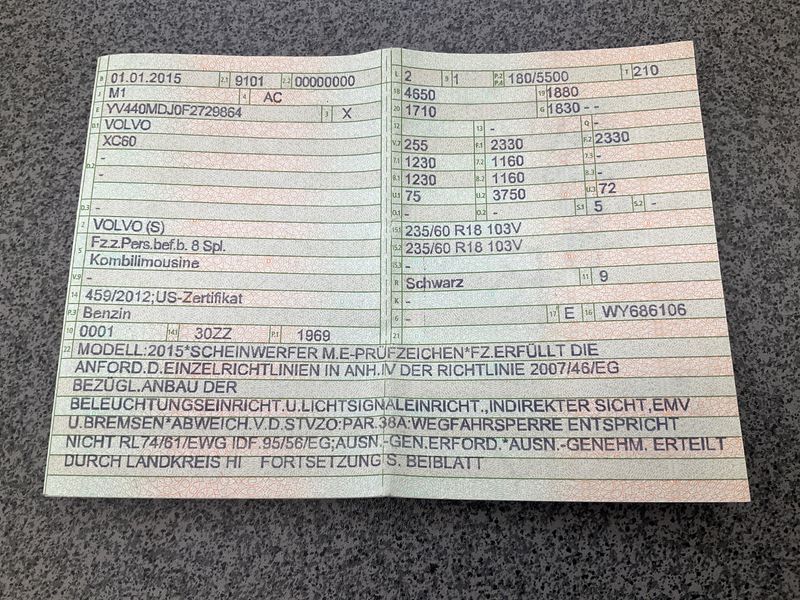 B 01.01.2015 2.1 9101 2.2 00000000
J M1 4 AC
E YV440MDJ0F2729864 3 X
D.1 VOLVO
XC60
D.2 -
-
D.3 -
2 VOLVO (S)
5 Fz.z.Pers.bef.b. 8 Spl.
Kombilimousine
V.9 -
14 459/2012;US-Zertifikat
P.3 Benzin
10 0001 14.1 30ZZ P.1 1969
L 2 9 1 P.2 P.4 180/5500 T 210
18 4650 19 1880
20 1710 G 1830 - -
12 - 13 - Q -
V.7 255 F.1 2330 F.2 2330
7.1 1230 7.2 1160 7.3 -
8.1 1230 8.2 1160 8.3 -
U.1 75 U.2 3750 U.3 72
O.1 - O.2 - S.1 5 S.2 -
15.1 235/60 R18 103V
15.2 235/60 R18 103V
15.3 -
R Schwarz 11 9
K -
6 - 17 E 16 WY686106
21
22 MODELL:2015*SCHEINWERFER M.E-PRÜFZEICHEN*FZ.ERFÜLLT DIE
ANFORD.D.EINZELRICHTLINIEN IN ANH.IV DER RICHTLINIE 2007/46/EG
BEZÜGL.ANBAU DER
BELEUCHTUNGSEINRICHT.U.LICHTSIGNALEINRICHT.,INDIREKTER SICHT,EMV
U.BREMSEN*ABWEICH.V.D.STVZO:PAR.38A:WEGFAHRSPERRE ENTSPRICHT
NICHT RL74/61/EWG IDF.95/56/EG;AUSN.-GEN.ERFORD.*AUSN.-GENEHM. ERTEILT
DURCH LANDKREIS HI FORTSETZUNG S. BEIBLATT